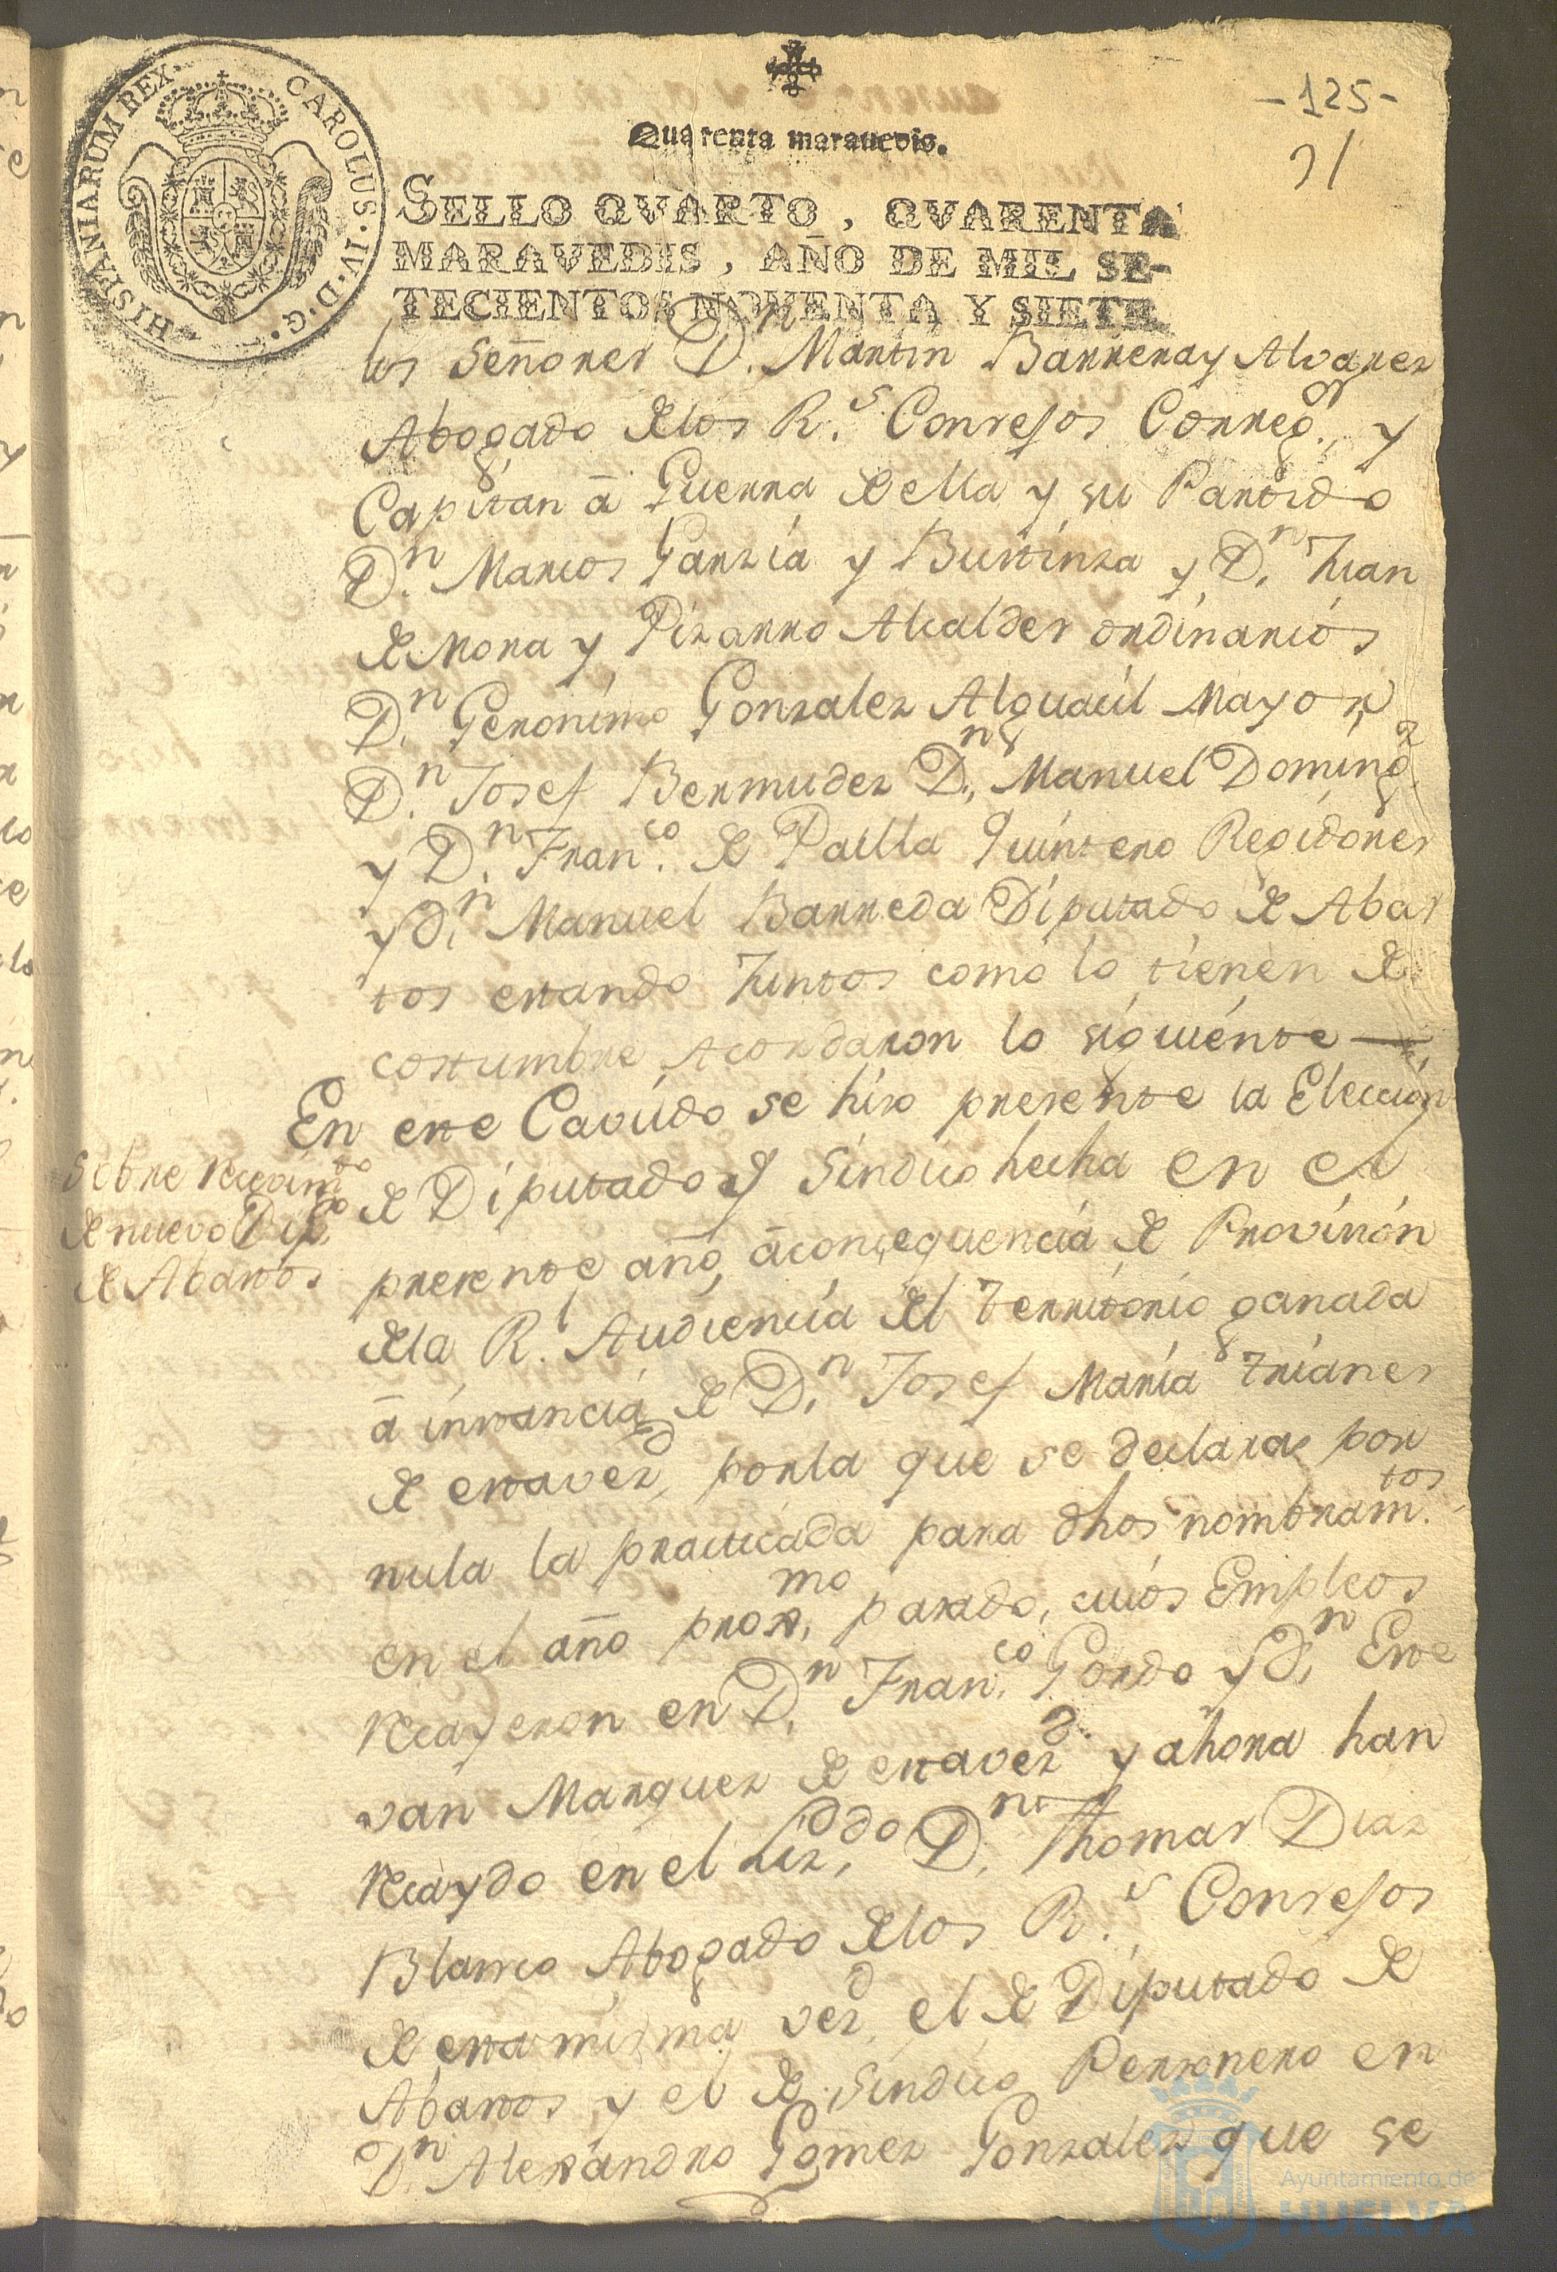 HISPANIARUM REX. CAROLUS·IV·D·G·
-125-
Quarenta marauedis.
SELLO QVARTO, QVARENTA
MARAVEDIS, AÑO DE MIL SE-
TECIENTOS NOVENTA Y SIETE.
los Señores D.n Martin Barrera y Alvarez
Abogado delos R.s Consejos Correg.or y
Capitan à Guerra de ella y su Partido
D.n Marcos Garzia y Bustinza y D.n Juan
de Mora y Pizarro Alcaldes ordinarios
D.n Geronimo Gonzalez Alguacil Mayor
D.n Josef Bermudez D.n Manuel Doming.z
y D.n Fran.co de Paula Quintero Regidores
y D.n Manuel Barreda Diputado de Abas
tos estando Juntos como lo tienen de
costumbre Acordaron lo siguiente
En este Cavildo se hizo presente la Eleccion
Sobre recivim.to
de nuevo Dip.do
de Abastos
de Diputado y Sindico hecha en el
presente año, à consequencia de Provision
dela R.l Audiencia del Territorio ganada
à instancia de D.n Josef Maria Trianes
de esta vez.d porla que se declara por
nula la practicada para dhos nombram.tos
en el año prox.mo pasado, cuios Empleos
recayeron en D.n Fran.co Gordo y D.n Este
van Marquez de esta vez.d y ahora han
recaydo en el Liz.do D.n Thomas Diaz
Blanco Abogado delos R.s Consejos
de esta misma vez.d el de Diputado de
Abastos y el de Sindico Personero en
D.n Alexandro Gomez Gonzalez que se
Ayuntamiento de
HUELVA